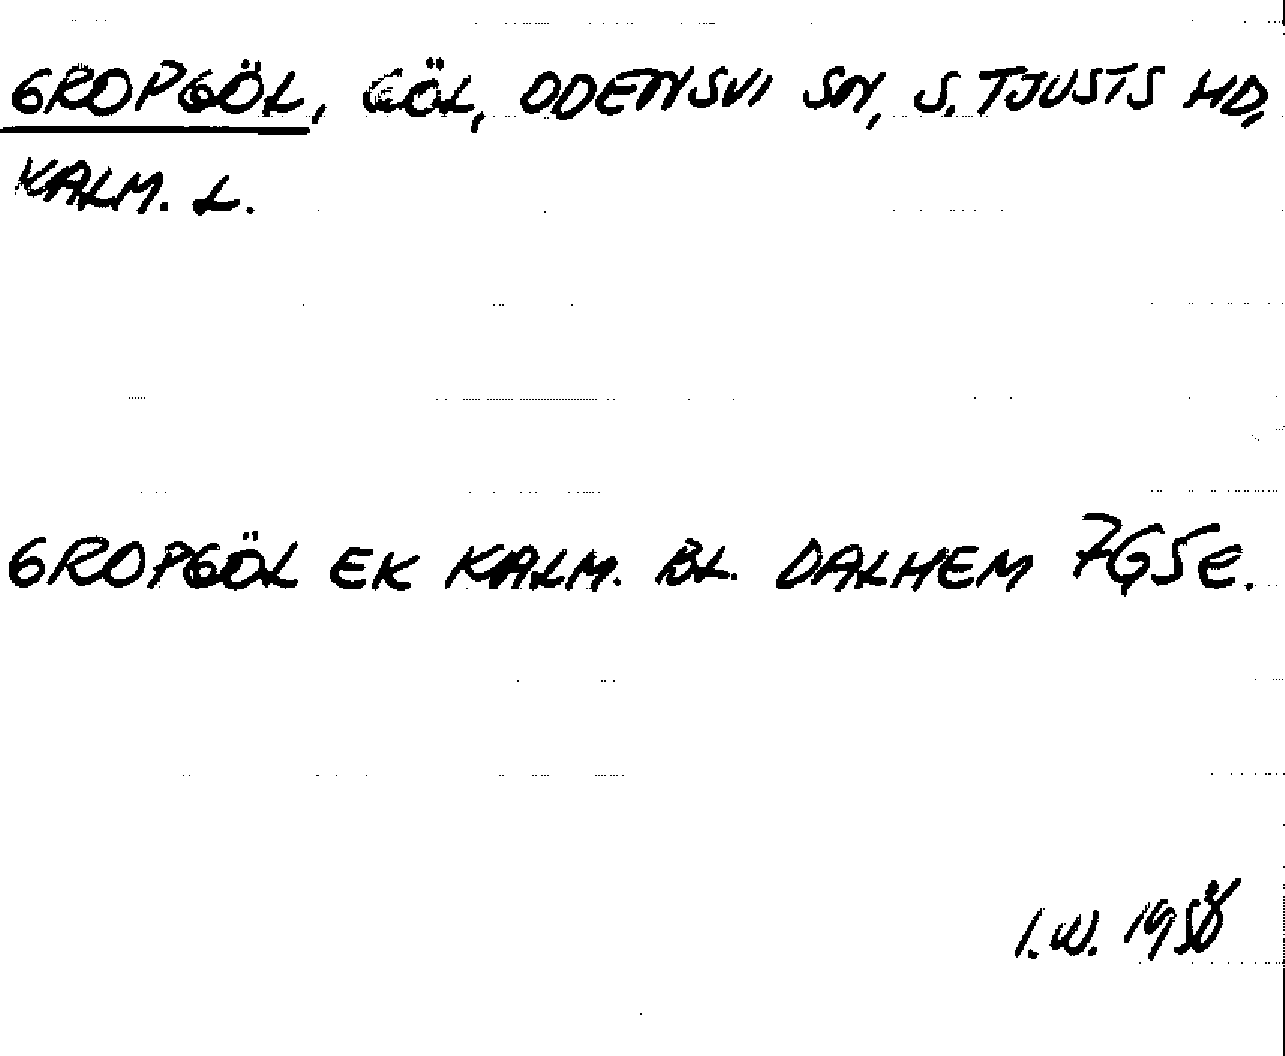 GROPGÖL, GÖL, ODENSVI SN, S. TJUSTS HD,
KALM. L.
GROPGÖL EK KALM. BL. DALHEM 7G5e.
I.W. 1958